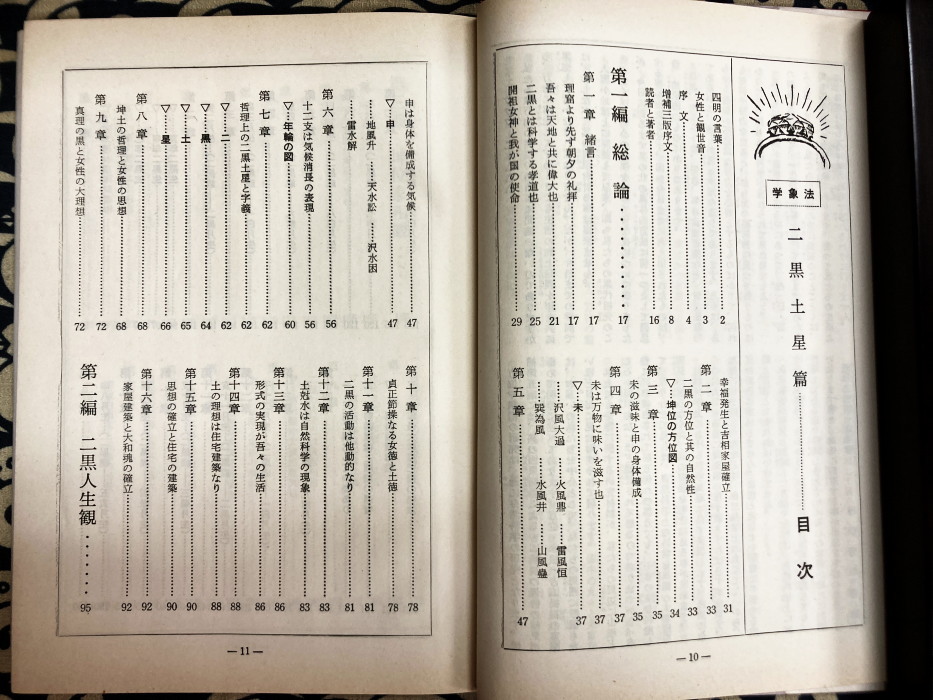 学象法
二黒土星篇……………目次
四明の言葉……………2
女性と観世音……………3
序文……………4
増補三版序文……………8
読者と著者……………16
第一編 総論……………17
第一章 緒言……………17
理窟より先ず朝夕の礼拝……………17
吾々は天地と共に偉大也……………21
二黒とは科学する孝道也……………25
開祖女神と我が国の使命……………29
幸福発生と吉相家屋確立……………31
第二章……………33
二黒の方位と其の自然性……………33
▽坤位の方位図……………34
第三章……………35
未の滋味と申の身体備成……………35
第四章……………37
未は万物に味いを滋す也……………37
▽未……………37
……沢風大過 ……火風鼎 ……雷風恒
……巽為風 ……水風井 ……山風蠱
第五章……………47
―10―
申は身体を備成する気候……………47
▽申……………47
……地風升 ……天水訟 ……沢水困
……雷水解
第六章……………56
十二支は気候消長の表現……………56
▽年輪の図……………60
第七章……………62
哲理上の二黒土星と字義……………62
▽二……………62
▽黒……………64
▽土……………65
▽星……………66
第八章……………68
坤土の哲理と女性の思想……………68
第九章……………72
真理の黒と女性の大理想……………72
第十章……………78
貞正節操なる女徳と土徳……………78
第十一章……………81
二黒の活動は他動的なり……………81
第十二章……………83
土尅水は自然科学の現象……………83
第十三章……………86
形式の実現が吾々の生活……………86
第十四章……………88
土の理想は住宅建築なり……………88
第十五章……………90
思想の確立と住宅の建築……………90
第十六章……………92
家屋建築と大和魂の確立……………92
第二編 二黒人生観……………95
―11―